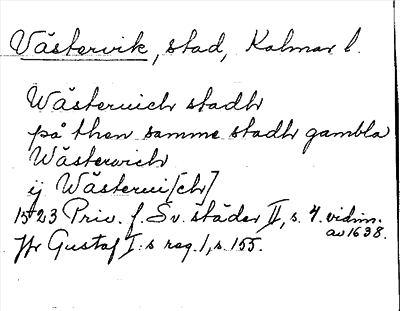 Västervik, stad, Kalmar l.
Wästeruich stadh
på then samme stadh gambla
Wästerwich
ij Wästerui[ch]
1523 Priv. f. Sv. städer II, s. 4. vidim. av 1638.
Jfr Gustaf I:s reg. 1, s. 155.